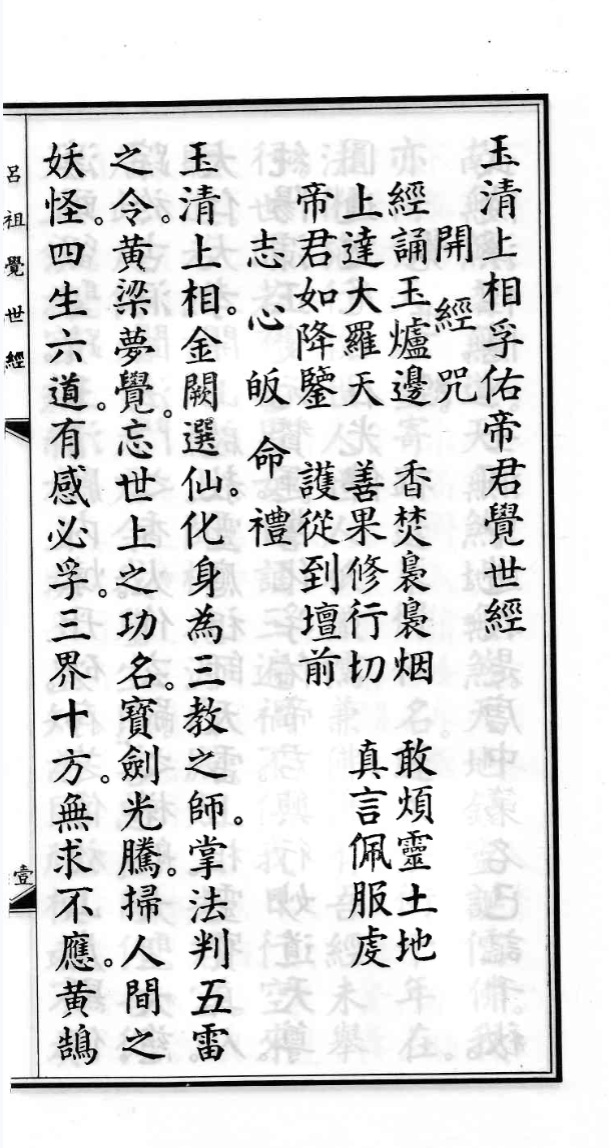 玉清上相孚佑帝君覺世經
開經咒
經誦玉爐邊　香焚裊裊烟　敢煩靈土地
上達大羅天　善果修行切　真言佩服虔
帝君如降鑒　護從到壇前
志心皈命禮
玉清上相。金闕選仙。化身為三教之師。掌法判五雷
之令。黃梁夢覺。忘世上之功名。寶劍光騰。掃人間之
妖怪。四生六道。有感必孚。三界十方。無求不應。黃鵠
呂祖覺世經
壹